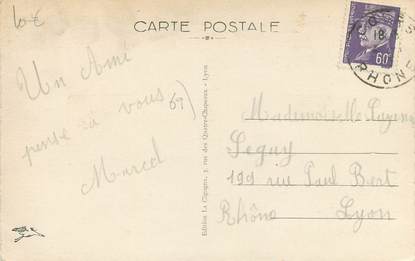 10€
CARTE POSTALE
18
RHONE
60
Un Ami
pense à vous
69
Marcel
Edition La Cigogne, 5, rue des Quatre-Chapeaux - Lyon
Mademoiselle
Seguy
199 rue Paul Bert
Rhône Lyon